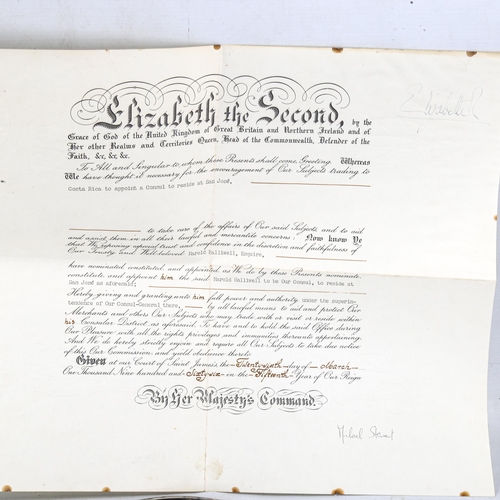 Elizabeth R
Elizabeth the Second, by the
Grace of God of the United Kingdom of Great Britain and Northern Ireland and of
Her other Realms and Territories Queen, Head of the Commonwealth, Defender of the
Faith, &c, &c, &c.
To All and Singular to whom these Presents shall come, Greeting. Whereas
We have thought it necessary for the encouragement of Our Subjects trading to
Costa Rica to appoint a Consul to reside at San José,
to take care of the affairs of Our said Subjects and to aid
and assist them in all their lawful and mercantile concerns; Now know Ye
that We reposing especial trust and confidence in the discretion and faithfulness of
Our Trusty and Well-beloved Harold Halliwell, Esquire,
have nominated, constituted and appointed as We do by these Presents nominate,
constitute and appoint him the said Harold Halliwell to be Our Consul, to reside at
San José as aforesaid;
Hereby giving and granting unto him full power and authority under the superin-
tendence of Our Consul-General there, by all lawful means to aid and protect Our
Merchants and others Our Subjects who may trade with or visit or reside within
his Consular District as aforesaid. To have and to hold the said Office during
Our Pleasure with all the rights privileges and immunities thereunto appertaining.
And We do hereby strictly enjoin and require all Our Subjects to take due notice
of this Our Commission and yield obedience thereto
Given at our Court of Saint James's the Twentyninth day of March
One Thousand Nine hundred and Sixtysix in the Fifteenth Year of Our Reign
By Her Majesty's Command.
Michael Stewart